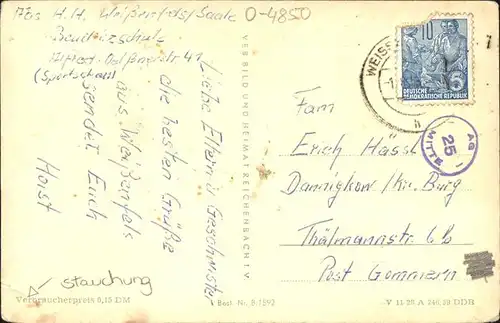 Abs. H. H. Weißenfels/Saale
O-4850
Alfred-Oelßnerstr. 41
(Sportschau)
Liebe Eltern u. Geschwister
die besten Grüße
aus Weißenfels
sendet Euch
Horst
stauchung
Verbraucherpreis 0,15 DM
VEB BILD UND HEIMAT REICHENBACH I. V.
Best.-Nr. B 1592
WEISS
10
5
DEUTSCHE
DEMOKRATISCHE REPUBLIK
AG
25
MITTE
Fam
Erich Hässl
Dannigkow/Kr. Burg
Thälmannstr. 6b
Post Gommern
V 11-28 A 246/59 DDR